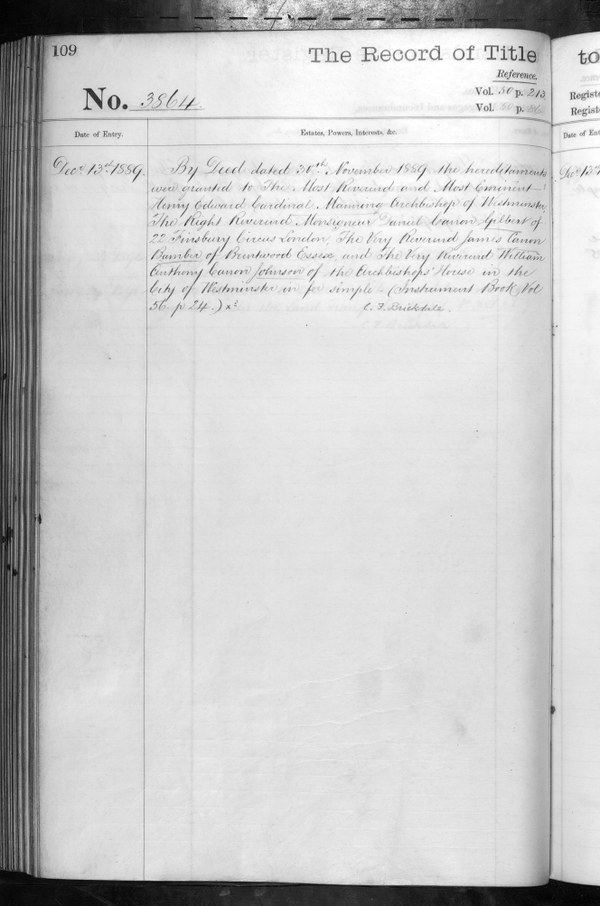 109
The Record of Title
Reference.
No. 3864.
Vol. 50 p. 213
Vol. p.
Date of Entry.
Estates, Powers, Interests, &c.
Decr. 13th. 1889.
By Deed dated 30th November 1889 the hereditaments
were granted to The Most Reverend and Most Eminent
Henry Edward Cardinal Manning Archbishop of Westminster
The Right Reverend Monsigneur Daniel Canon Gilbert of
22 Finsbury Circus London, The Very Reverend James Canon
Bamber of Brentwood Essex and The Very Reverend William
Anthony Canon Johnson of the Archbishops' House in the
City of Westminster in fee simple (Instrument Book Vol
56. p 24.)
C. F. Brickdale.
to
Registe
Registe
Date of Ent